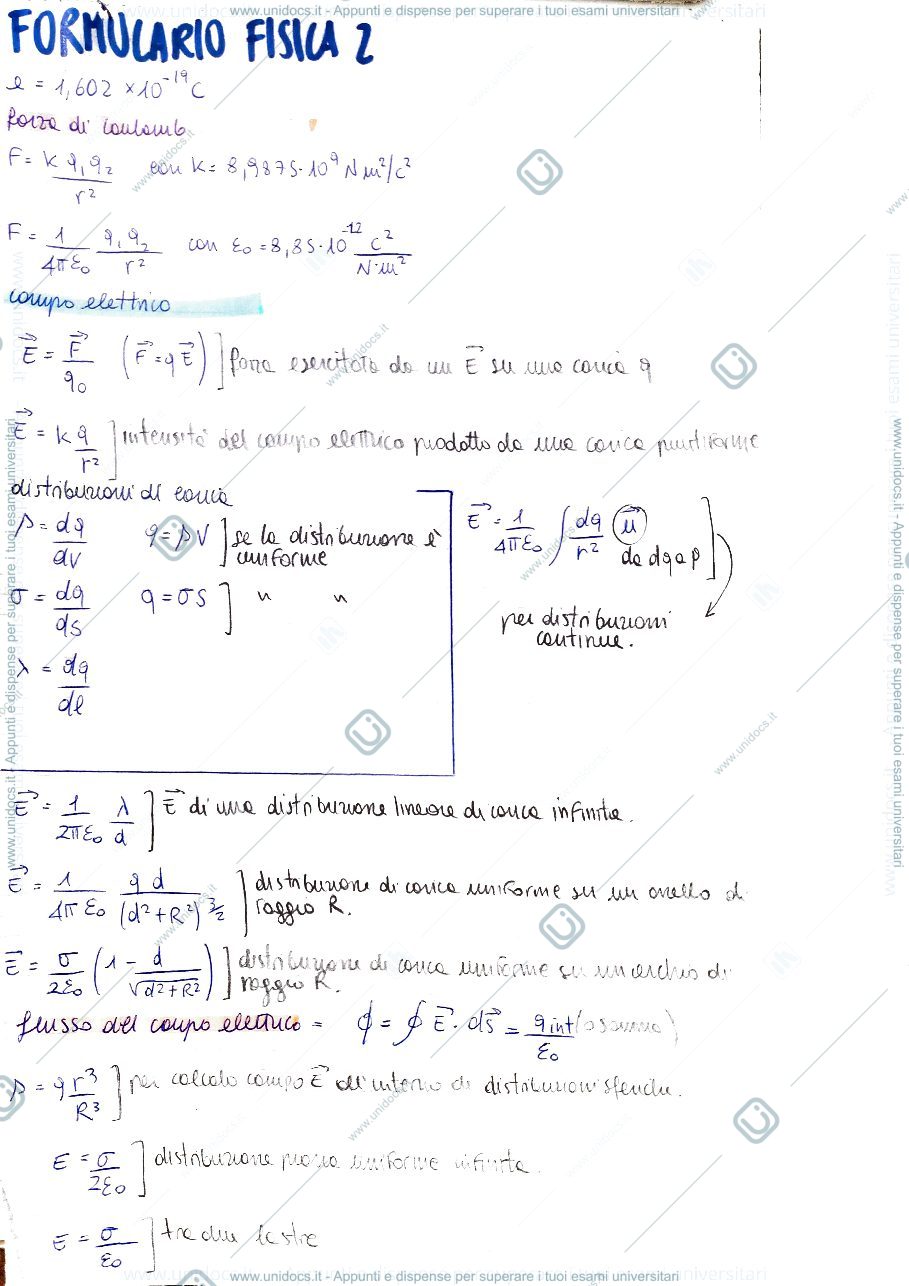 www.unidocs.it - Appunti e dispense per superare i tuoi esami universitari
FORMULARIO FISICA 2
e = 1,602 ×10⁻¹⁹ C
forza di Coulomb
F = k q₁q₂/r² con k = 8,9875·10⁹ N m²/C²
F = 1/4πε₀ q₁q₂/r² con ε₀ = 8,85·10⁻¹² C²/N·m²
campo elettrico
E⃗ = F⃗/q₀ (F⃗ = qE⃗) ] forza esercitata da un E⃗ su una carica q
E⃗ = k q/r² ] intensità del campo elettrico prodotto da una carica puntiforme
distribuzioni di carica
ρ = dq/dV q = ρV ] se la distribuzione è uniforme
σ = dq/ds q = σS ] " "
λ = dq/dl
E⃗ = 1/4πε₀ ∫ dq/r² u⃗ ]
da dq a P
per distribuzioni
continue.
E⃗ = 1/2πε₀ λ/d ] E⃗ di una distribuzione lineare di carica infinita.
E⃗ = 1/4πε₀ qd/(d²+R²)^3/2 ] distribuzione di carica uniforme su un anello di
raggio R.
E⃗ = σ/2ε₀ (1 - d/√d²+R²) ] distribuzione di carica uniforme su un cerchio di
raggio R.
flusso del campo elettrico = ϕ = ∮ E⃗ · ds⃗ = q int/ε₀
ρ = q r³/R³ ] per calcolo campo E⃗ all'interno di distribuzioni sferiche.
E = σ/2ε₀ ] distribuzione piana uniforme infinita.
E = σ/ε₀ ] tra due lastre
www.unidocs.it - Appunti e dispense per superare i tuoi esami universitari